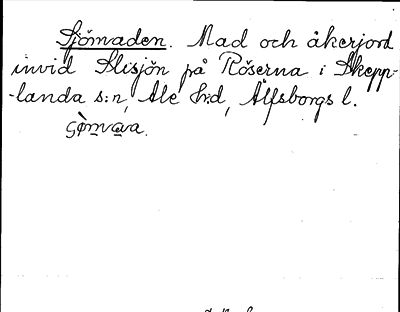 Sjömaden. Mad och åkerjord
invid Slisjön på Röserna i Skepp-
-landa s:n, Ale h:d, Älfsborgs l.